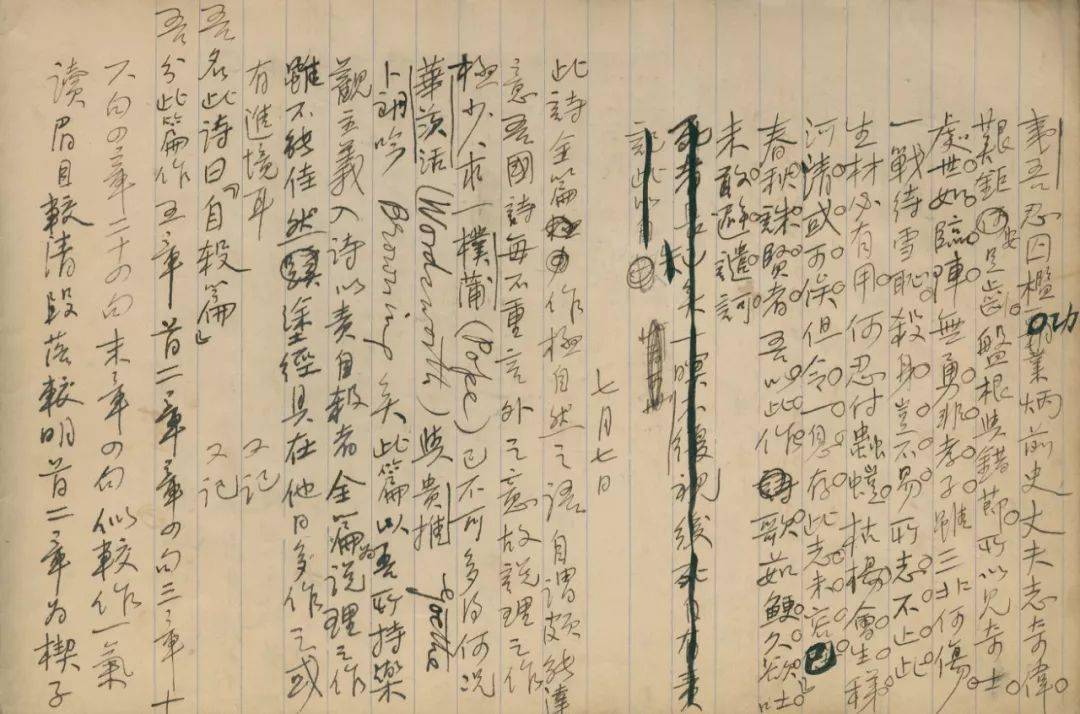 夷吾忍囚檻功業炳前史丈夫志奇偉
艱鉅安足齒盤根與錯節所以見奇士
處世如臨陣無勇非孝子雖三北何傷
一戰待雪恥殺身豈不易所志不止此
生材必有用何忍付蟲螘枯楊會生稊
河清或可俟但令一息存此志未容已
春秋誅賢者吾以此作歌茹鯁久欲吐
未敢避譴訶
死者長已矣一瞑不復視後死者有責
七月七日
此詩全篇作極自然之語自謂頗能達
意吾國詩每不重言外之意故說理之作
極少求一樸蒲(Pope)已不可多得何況
華茨活(Wordsworth)與貴推Goethe
卜朗吟Browning矣此篇以吾所持樂
觀主義入詩以責自殺者全篇為說理之作
雖不能佳然途徑具在他日多作之或
有進境耳 又記
吾名此詩曰『自殺篇』 又記
吾分此篇作五章首二章章四句三章章十
六句四章二十四句末章四句似較作一氣
讀眉目較清段落較明首二章為楔子